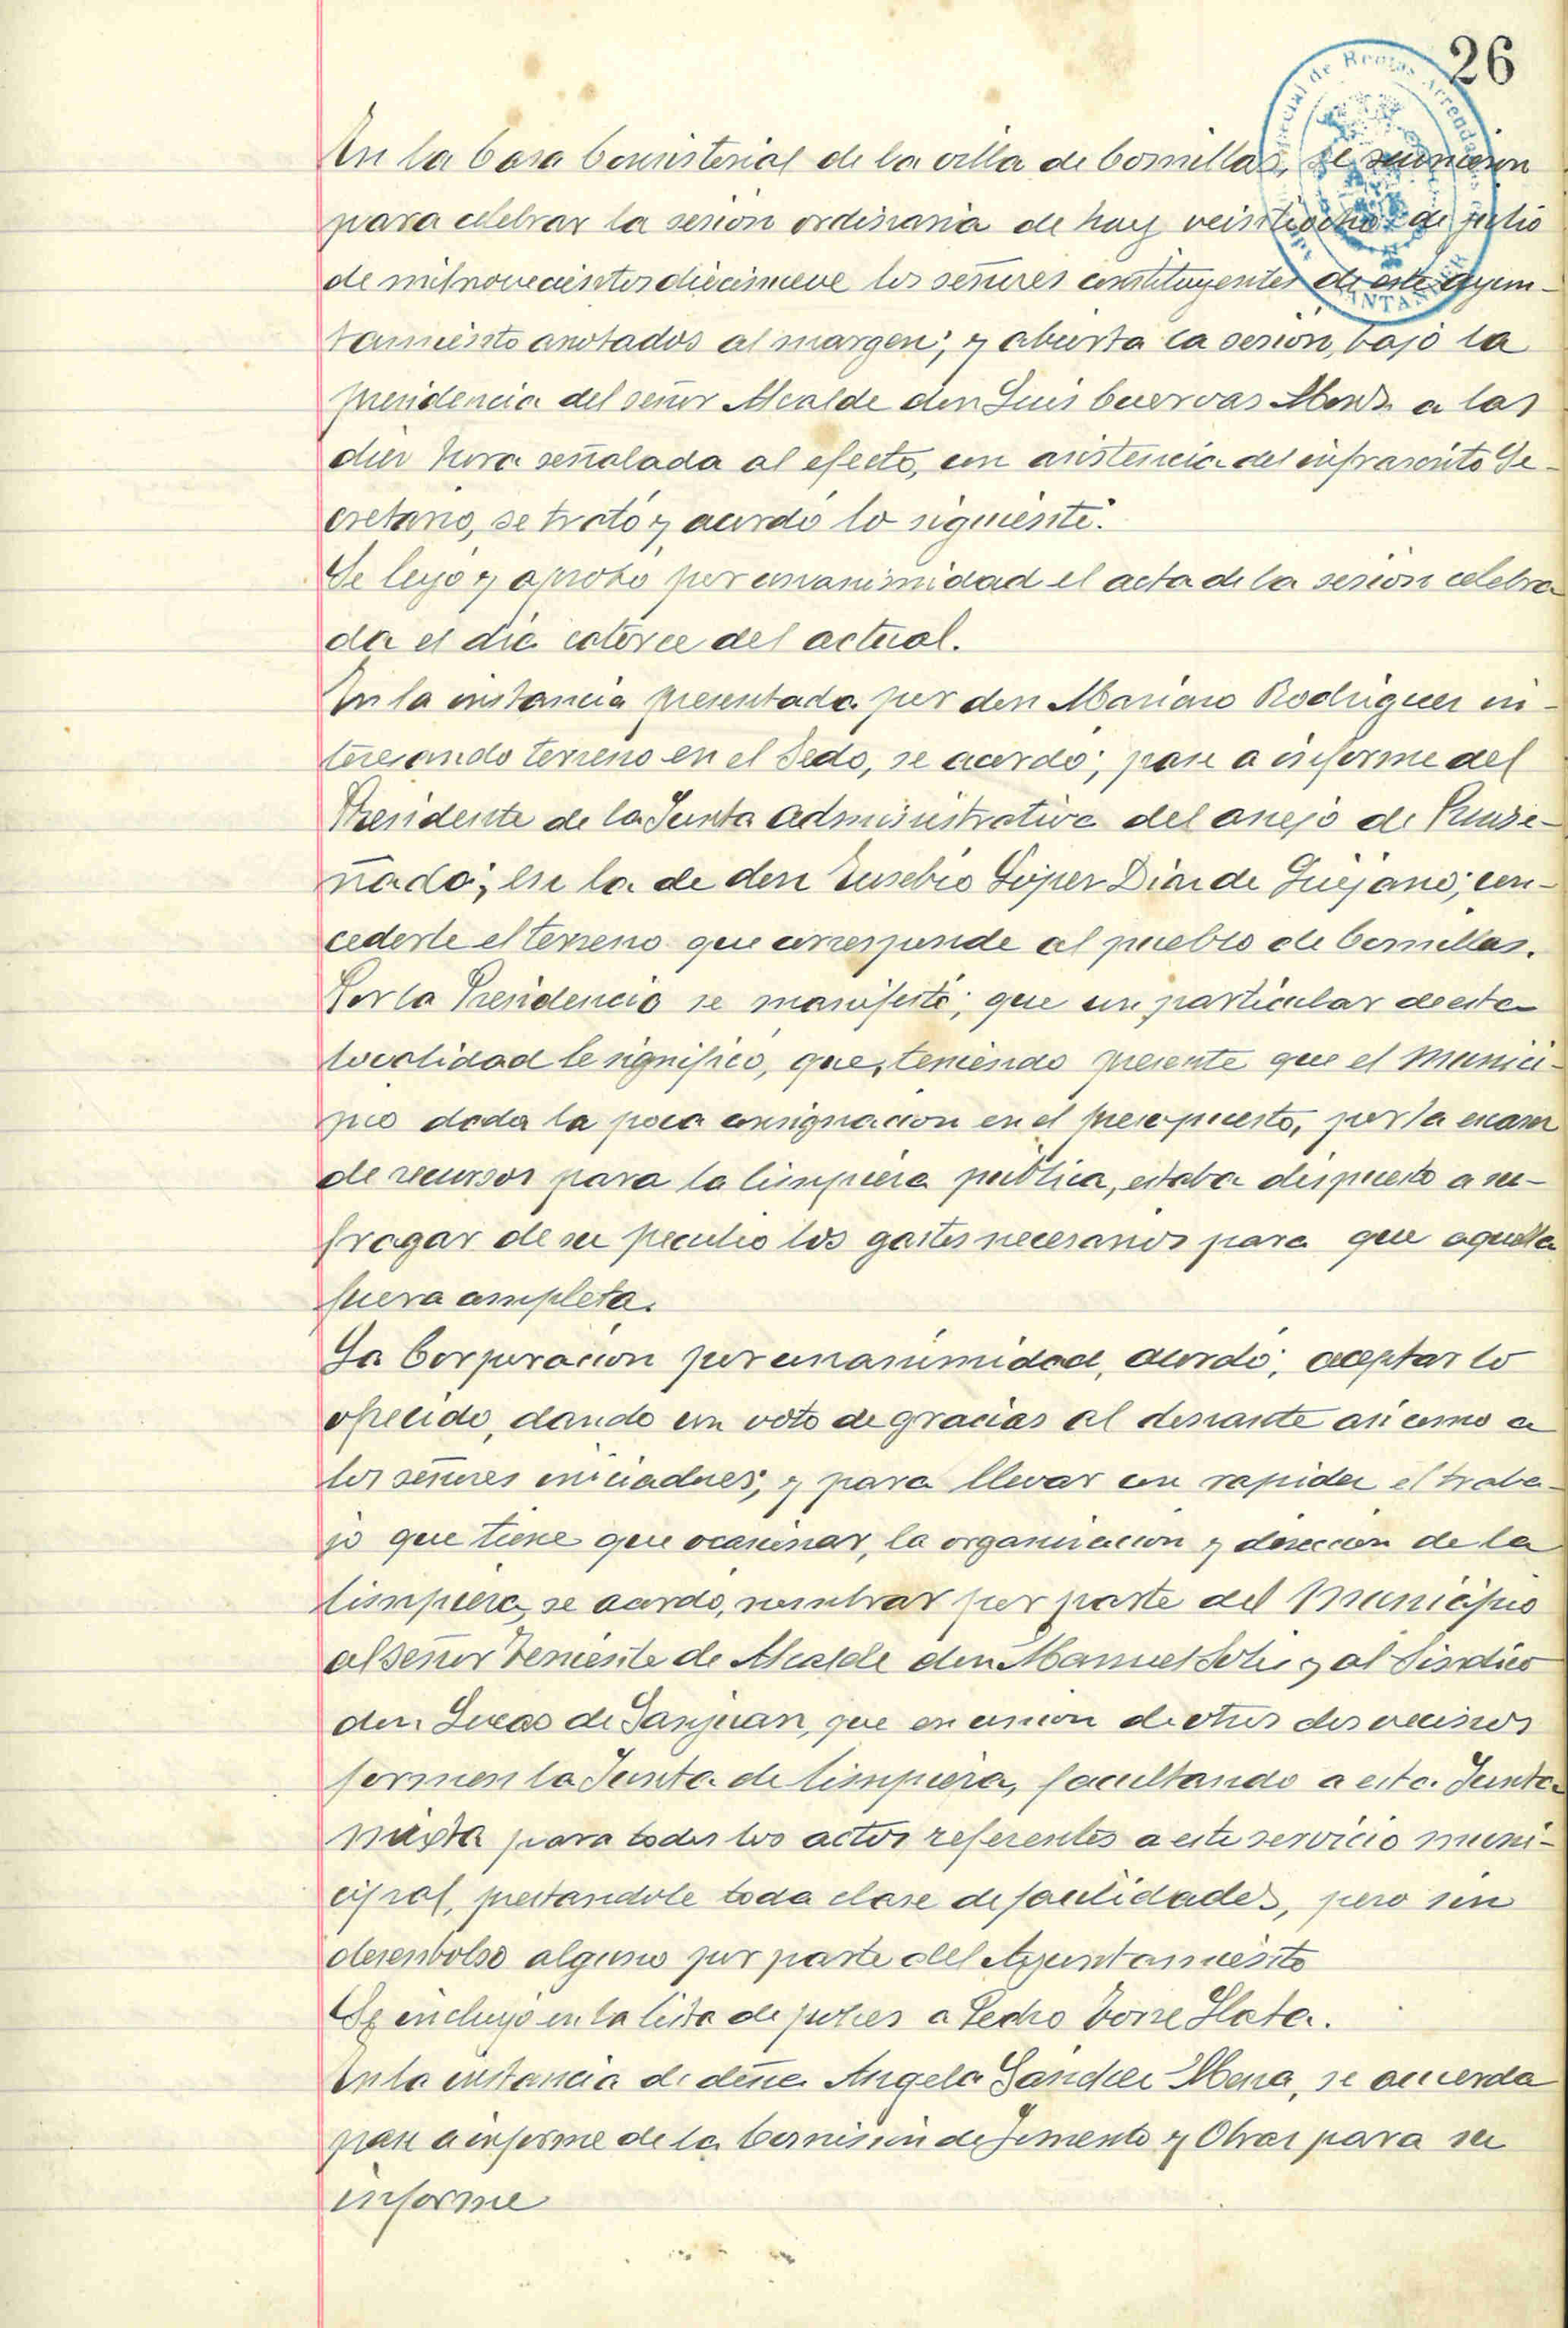 26
En la Casa Consistorial de la villa de Comillas, se reunieron
para celebrar la sesion ordinaria de hoy veintiocho de julio
de mil novecientos diecinueve los señores constituyentes de este Ayun-
tamiento anotados al margen; y abierta la sesion, bajo la
presidencia del señor Alcalde don Luis Cuervas Mons a las
diez hora señalada al efecto, con asistencia del infrascrito Se-
cretario, se trató y acordó lo siguiente:
Se leyó y aprobó por unanimidad el acta de la sesion celebra-
da el dia catorce del actual.
En la instancia presentada por don Mariano Rodriguez in-
teresando terreno en el Sedo, se acordó; pase a informe del
Presidente de la Junta administrativa del anejo de Ruise-
ñada; en la de don Eusebio López Diaz de Guijano; con-
cederle el terreno que corresponde al pueblo de Comillas.
Por la Presidencia se manifestó; que un particular de esta
localidad le significó, que, teniendo presente que el Munici-
pio dada la poca consignacion en el presupuesto, por la escasez
de recursos para la limpieza pública, estaba dispuesto a su-
fragar de su peculio los gastos necesarios para que aquella
fuera completa.
La Corporacion por unanimidad, acordó; aceptar lo
ofrecido, dando un voto de gracias al donante asi como a
los señores iniciadores; y para llevar con rapidez el traba-
jo que tiene que ocasionar, la organizacion y direccion de la
limpieza, se acordó, nombrar por parte del Municipio
al señor Teniente de Alcalde don Manuel Solis y al Sindico
don Lucas de Sanjuan, que en union de otros dos vecinos
formen la Junta de limpieza, facultando a esta Junta
mixta para todos los actos referentes a este servicio muni-
cipal, prestandole toda clase de facilidades, pero sin
desembolso alguno por parte del Ayuntamiento
Se incluyó en la lista de pobres a Pedro Torre Llata.
En la instancia de doña Angela Sanchez Mena, se acuerda
pase a informe de la Comision de Fomento y Obras para su
informe